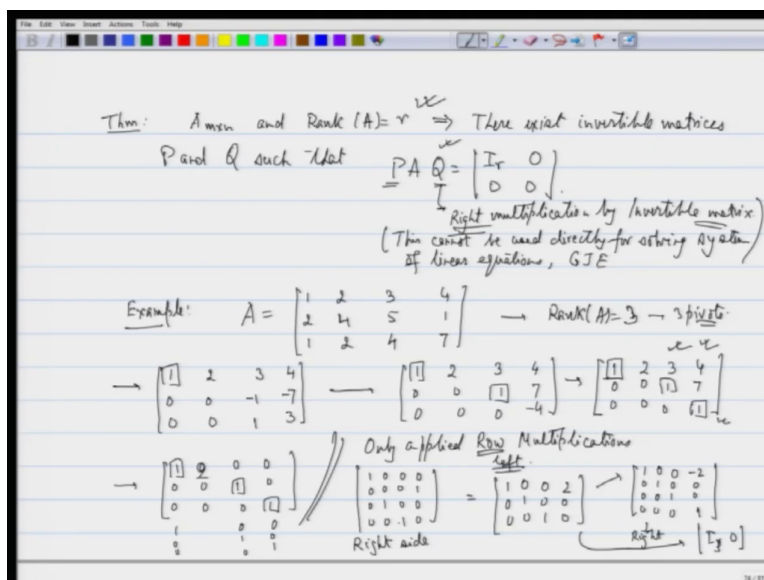 File Edit View Insert Actions Tools Help
B I
Thm: A mxn and Rank (A) = r ⇒ There exist invertible matrices
P and Q such that P A Q = [ I_r 0
0 0 ].
Right multiplication by Invertible matrix.
(This cannot be used directly for solving system
of linear equations, GJE
Example: A = [ 1 2 3 4
2 4 5 1
1 2 4 7 ] → Rank(A)=3 → 3 pivots.
→ [ 1 2 3 4
0 0 -1 -7
0 0 1 3 ]
→ [ 1 2 3 4
0 0 1 7
0 0 0 -4 ]
→ [ 1 2 3 4
0 0 1 7
0 0 0 1 ]
Only applied Row Multiplications
left.
→ [ 1 2 0 0
0 0 1 0
0 0 0 1 ]
1 0 0
0 0
0 1 0
[ 1 0 0 0
0 0 0 1
0 1 0 0
0 0 -1 0 ]
Right side
= [ 1 0 0 2
0 1 0 0
0 0 1 0 ]
→ [ 1 0 0 -2
0 1 0 0
0 0 1 0
0 0 0 1 ]
Right
→ [ I_3 0 ]